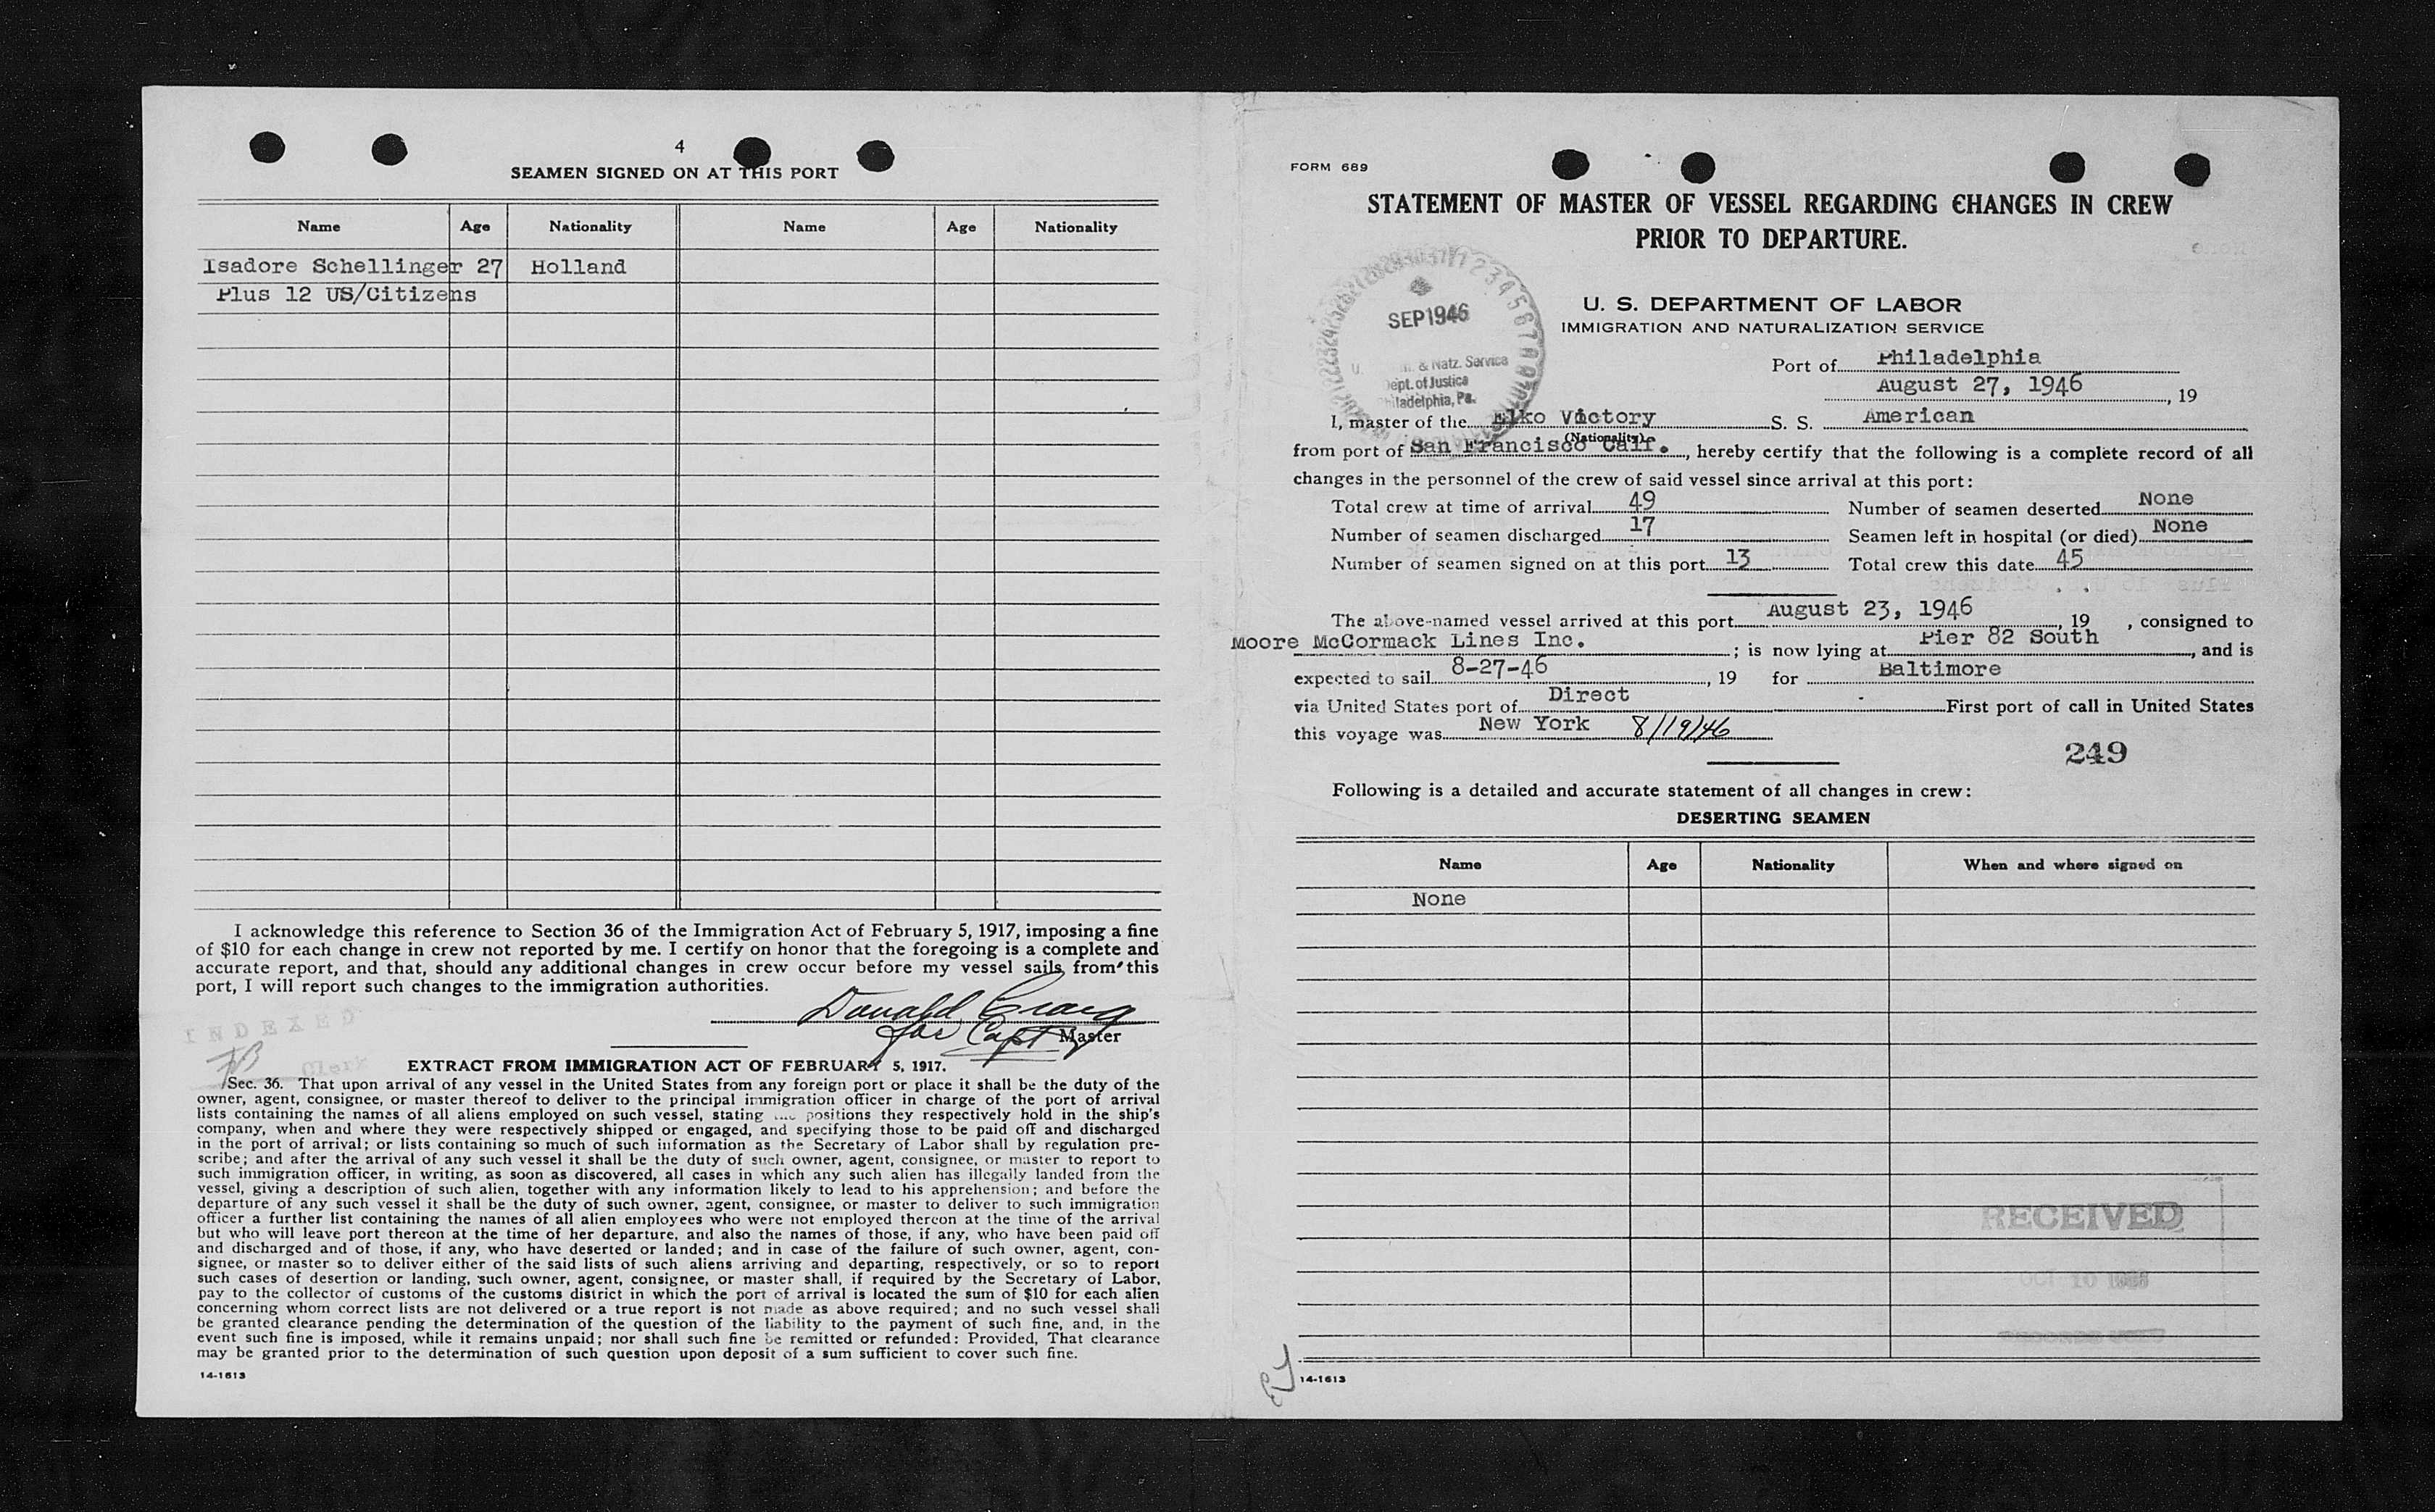 4
SEAMEN SIGNED ON AT THIS PORT
Name Age Nationality Name Age Nationality
Isadore Schellinger 27 Holland
Plus 12 US/Citizens
I acknowledge this reference to Section 36 of the Immigration Act of February 5, 1917, imposing a fine
of $10 for each change in crew not reported by me. I certify on honor that the foregoing is a complete and
accurate report, and that, should any additional changes in crew occur before my vessel sails from this
port, I will report such changes to the immigration authorities.
Donald Craig
for Capt Master
INDEXED
Clerk
EXTRACT FROM IMMIGRATION ACT OF FEBRUARY 5, 1917.
Sec. 36. That upon arrival of any vessel in the United States from any foreign port or place it shall be the duty of the
owner, agent, consignee, or master thereof to deliver to the principal immigration officer in charge of the port of arrival
lists containing the names of all aliens employed on such vessel, stating the positions they respectively hold in the ship's
company, when and where they were respectively shipped or engaged, and specifying those to be paid off and discharged
in the port of arrival; or lists containing so much of such information as the Secretary of Labor shall by regulation pre-
scribe; and after the arrival of any such vessel it shall be the duty of such owner, agent, consignee, or master to report to
such immigration officer, in writing, as soon as discovered, all cases in which any such alien has illegally landed from the
vessel, giving a description of such alien, together with any information likely to lead to his apprehension; and before the
departure of any such vessel it shall be the duty of such owner, agent, consignee, or master to deliver to such immigration
officer a further list containing the names of all alien employees who were not employed thereon at the time of the arrival
but who will leave port thereon at the time of her departure, and also the names of those, if any, who have been paid off
and discharged and of those, if any, who have deserted or landed; and in case of the failure of such owner, agent, con-
signee, or master so to deliver either of the said lists of such aliens arriving and departing, respectively, or so to report
such cases of desertion or landing, such owner, agent, consignee, or master shall, if required by the Secretary of Labor,
pay to the collector of customs of the customs district in which the port of arrival is located the sum of $10 for each alien
concerning whom correct lists are not delivered or a true report is not made as above required; and no such vessel shall
be granted clearance pending the determination of the question of the liability to the payment of such fine, and, in the
event such fine is imposed, while it remains unpaid; nor shall such fine be remitted or refunded: Provided, That clearance
may be granted prior to the determination of such question upon deposit of a sum sufficient to cover such fine.
14-1613
FORM 689
STATEMENT OF MASTER OF VESSEL REGARDING CHANGES IN CREW
PRIOR TO DEPARTURE.
SEP 1946
& Natz. Service
Dept. of Justice
Philadelphia, Pa.
U. S. DEPARTMENT OF LABOR
IMMIGRATION AND NATURALIZATION SERVICE
Port of Philadelphia
August 27, 1946, 19
I, master of the Elko Victory S. S. American
(Nationality)
from port of San Francisco Calif., hereby certify that the following is a complete record of all
changes in the personnel of the crew of said vessel since arrival at this port:
Total crew at time of arrival 49 Number of seamen deserted None
Number of seamen discharged 17 Seamen left in hospital (or died) None
Number of seamen signed on at this port 13 Total crew this date 45
The above-named vessel arrived at this port August 23, 1946, 19 , consigned to
Moore McCormack Lines Inc. ; is now lying at Pier 82 South, and is
expected to sail 8-27-46, 19 for Baltimore
via United States port of Direct First port of call in United States
this voyage was New York 8/19/46
249
Following is a detailed and accurate statement of all changes in crew:
DESERTING SEAMEN
Name Age Nationality When and where signed on
None
RECEIVED
OCT 10
14-1613